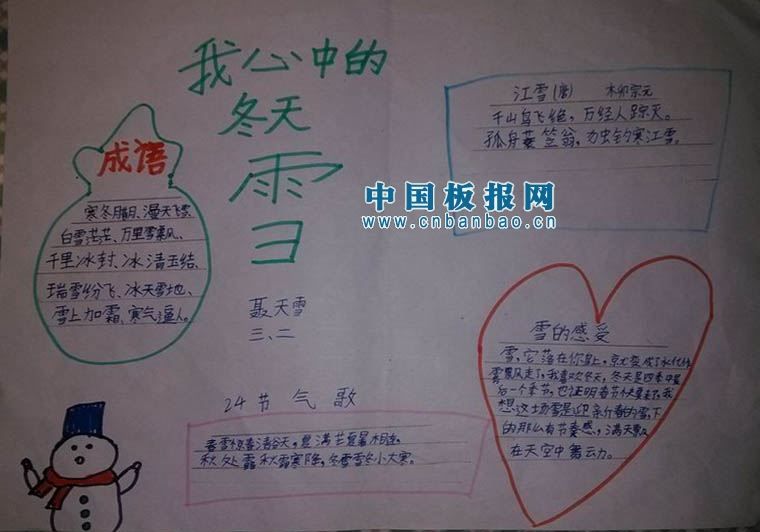 我心中的
冬天
雪
成语
寒冬腊月、漫天飞雪、
白雪茫茫、万里雪飘、
千里冰封、冰清玉结、
瑞雪纷飞、冰天雪地、
雪上加霜、寒气逼人。
江雪(唐) 柳宗元
千山鸟飞绝，万径人踪灭。
孤舟蓑笠翁，独钓寒江雪。
中国板报网
www.cnbanbao.cn
聂天雪
三、二
24节气歌
春雪惊春清谷天，夏满芒夏暑相连。
秋处露秋霜寒降，冬雪雪冬小大寒。
雪的感受
雪，它落在你身上，就变成了水代
雾飘风走了，我喜欢冬天，冬天是四季中最
后一个季节，也证明春节快要来了，我
想这场雪是迎新春的雪，下
的那么有节奏感，满天飘
在天空中舞动。